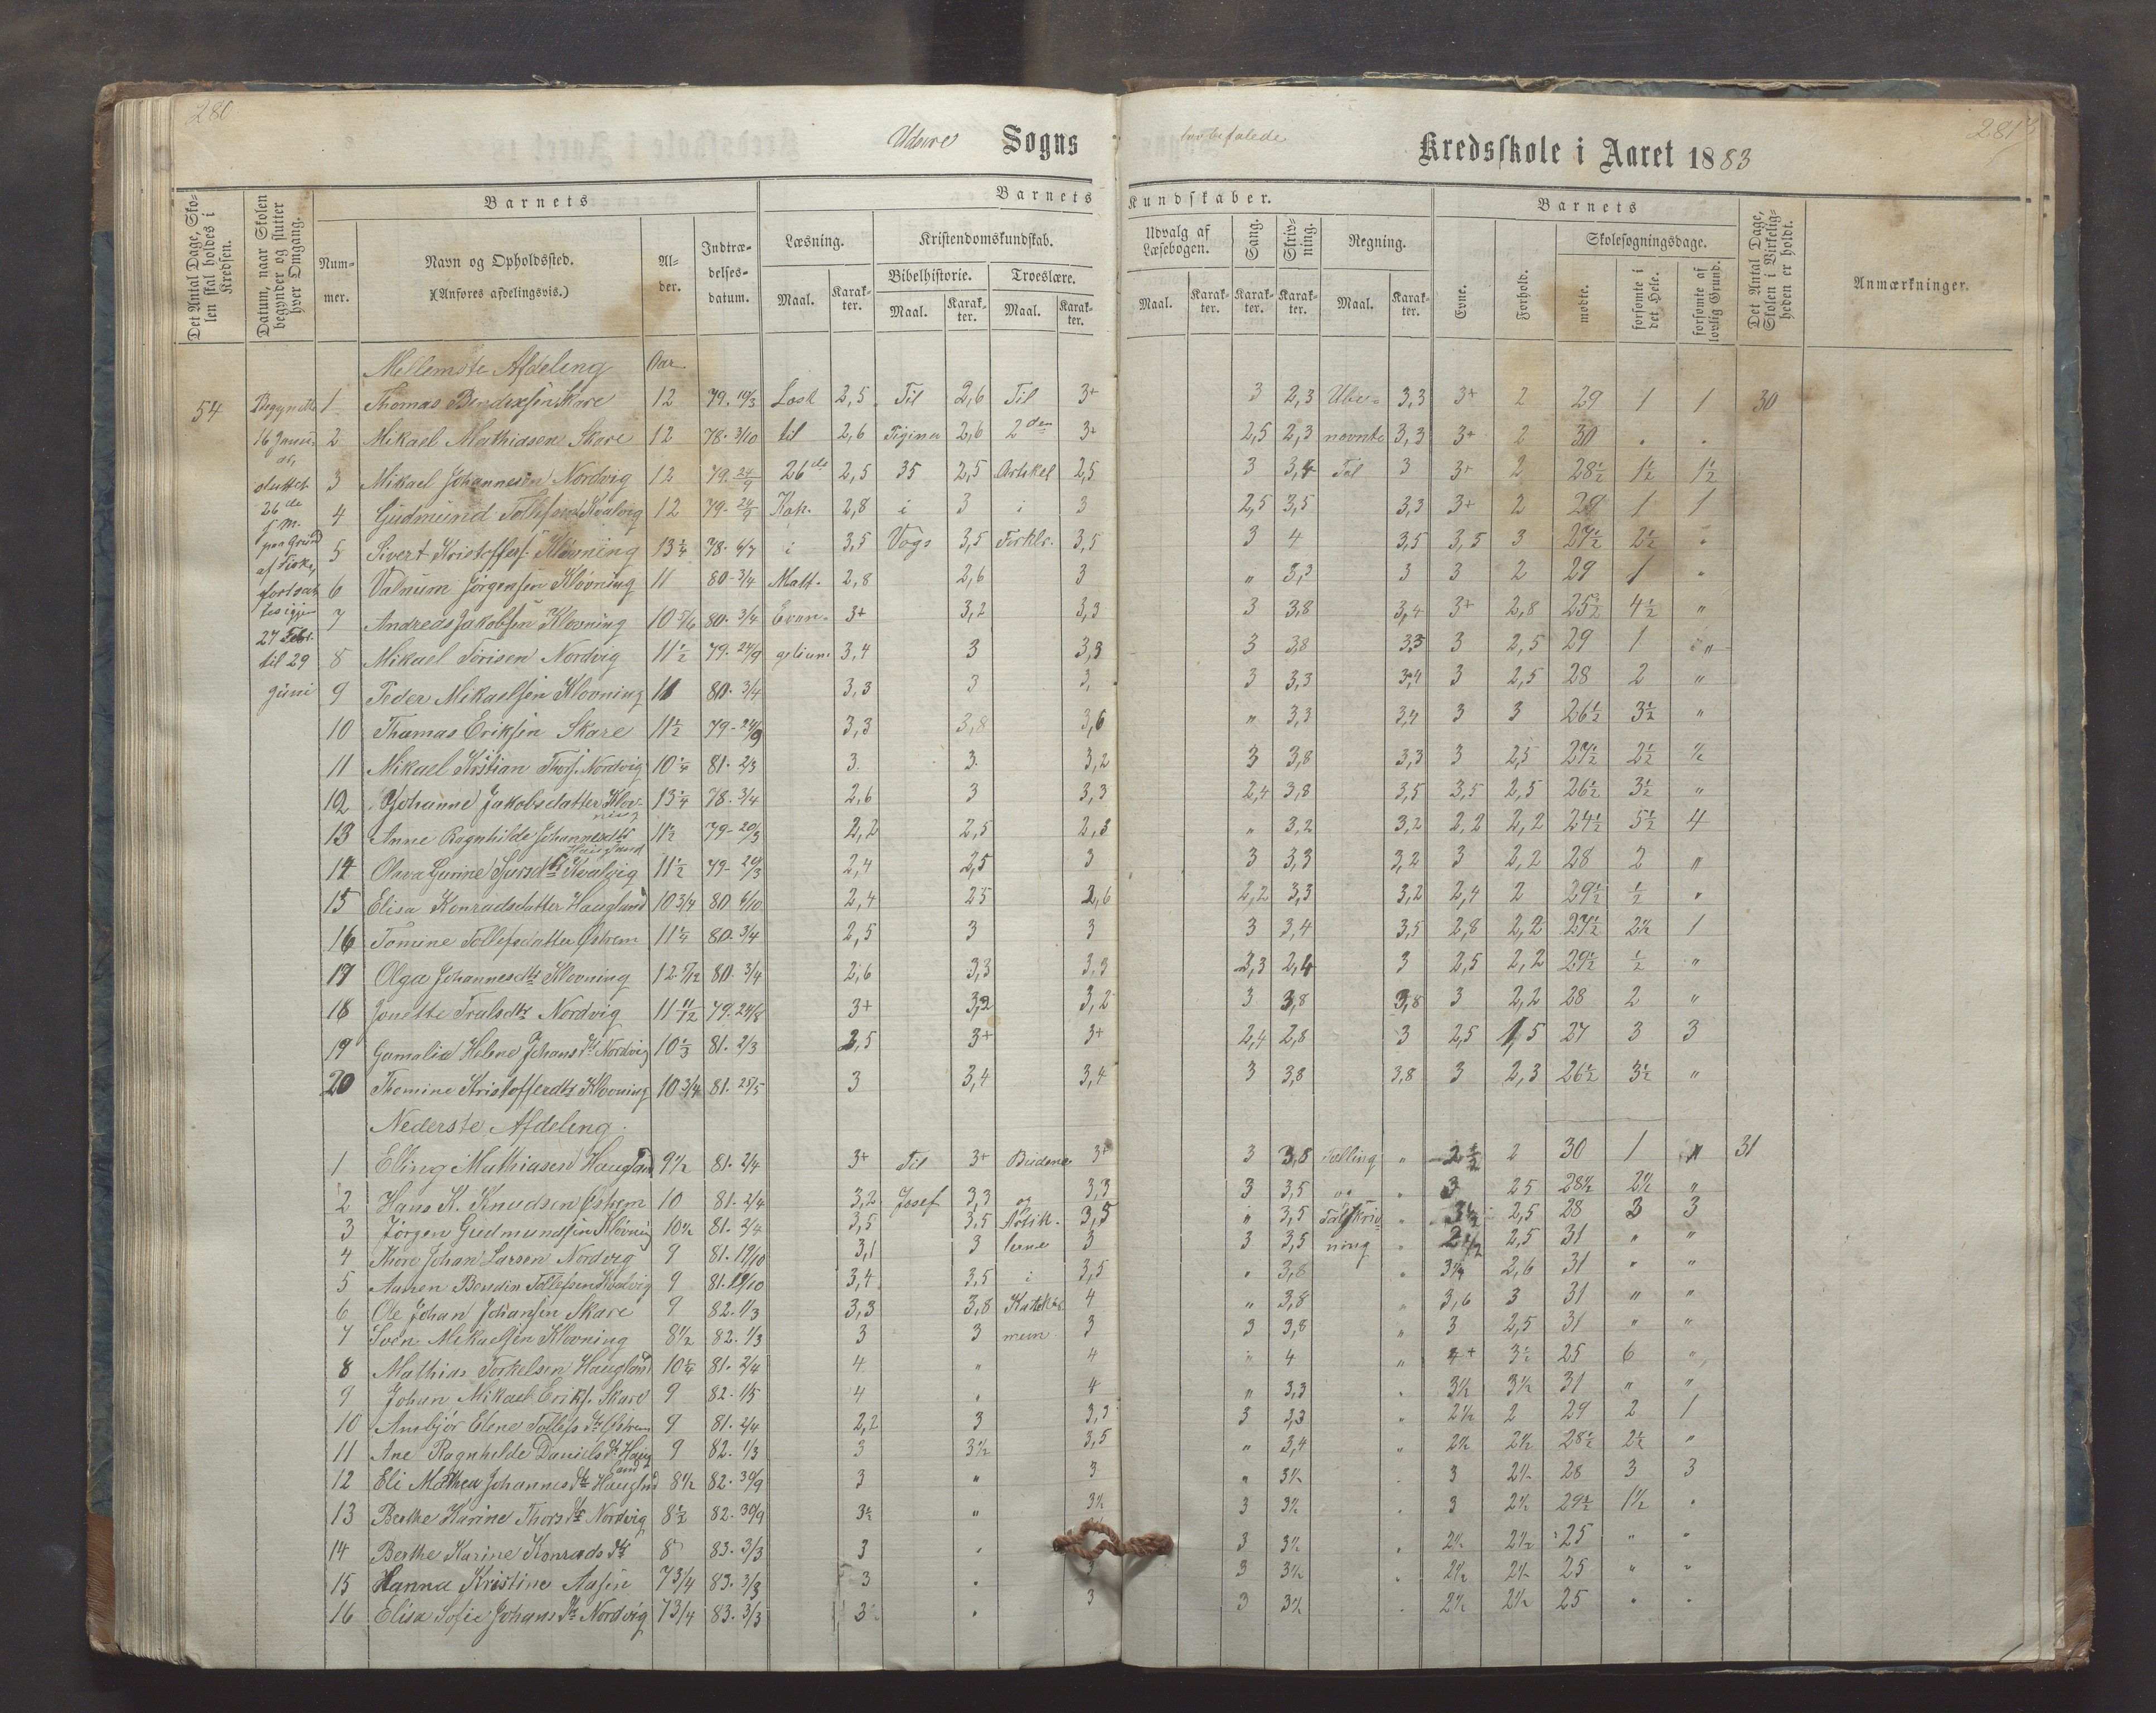 280
Udsire Sogns
anbefalede
Kredsskole i Aaret 1883
281
Det Antal Dage, Skolen skal holdes i Kredsen.
Datum, naar Skolen begynder og slutter hver Omgang.
Barnets
Nummer.
Navn og Opholdssted.
(Anføres afdelingsvis.)
Alder.
Indtrædelsesdatum.
Barnets Kundskaber.
Læsning.
Maal. Karakter.
Kristendomskundskab.
Bibelhistorie.
Maal. Karakter.
Troeslære.
Maal. Karakter.
Udvalg af Læsebogen.
Maal. Karakter.
Sang.
Karakter.
Skrivning.
Karakter.
Regning.
Maal. Karakter.
Barnets
Evne.
Forhold.
Skolesøgningsdage.
mødte.
forsømte i det Hele.
forsømte af lovlig Grund.
Det Antal Dage, Skolen i Virkeligheden er holdt.
Anmærkninger.
Mellemste Afdeling Aar.
54 Begyndte 1 Thomas Bendixsen Skare 12 79. 10/3 Læst 2,5 Til 2,6 Til 3+ 3 2,3 Ube= 3,3 3+ 2 29 1 1 30
16 Janu= 2 Mikael Mathiasen Skare 12 78. 3/10 til 2,6 Pigina 2,6 2den 3+ 2,5 2,3 nævnte 3,3 3+ 2 30 " "
ar,
sluttet 3 Mikael Johannesen Nordvig 12 79. 24/9 26de 2,5 35 2,5 Artikel 2,5 3 3,4 Tal 3 3+ 2 28½ 1½ 1½
26de
f. M. 4 Gudmund Tollefsen Kvalvig 12 79. 24/9 Kap. 2,8 i 3 i 3 2,5 3,5 3,3 3+ 2 29 1 1
paa Grund 5 Sivert Kristoffers. Kløvning 13¼ 78. 6/7 i 3,5 Vogs 3,5 Forklr. 3,5 3 4 3,5 3,5 3 27½ 2½ "
af Fiske,
fortsat 6 Valnum Jørgensen Kløvning 11 80-3/4 Matt. 2,8 2,6 3 " 3,3 3 3 2 29 1 "
tes igjen 7 Andreas Jakobsen Klovning 10 5/6 80. 3/4 Evan= 3+ 3,2 3,3 3 3,8 3,4 3+ 2,8 25½ 4½ "
27 Febr.
til 29 8 Mikael Torisen Nordvig 11½ 79. 24/9 gelium 3,4 3 3,3 3 3,8 3,5 3 2,5 29 1 "
juni 9 Peder Mikaelsen Klovning 11 80. 3/4 3,3 3 3, 3 3,3 3,4 3 2,5 28 2 "
10 Thomas Eriksen Skare 11½ 79-24/9 3,3 3,8 3,6 " 3,3 3,4 3 3 26½ 3½ "
11 Mikael Kristian Thors. Nordvig 10¼ 81. 2/3 3. 3. 3,2 3 3,8 3,3 3 2,5 27½ 2½ ½
12 Johanne Jakobsdatter Klov= 13¼ 78. 3/4 2,6 3 3,3 2,4 3,8 3,5 3,5 2,5 26½ 3½ "
ning
13 Anne Ragnhilde Johannesdtr 11½ 79-20/3 2,2 2,5 2,3 " 3,2 3,2 2,2 2,2 24½ 5½ 4
Haugland
14 Olava Gurine Sjursdtr Kvalvig 11½ 79-20/3 2,4 2,5 3 3 3,3 3,2 3 2,2 28 2 "
15 Elisa Konradsdatter Haugland 10 3/4 80 6/10 2,4 25 2,6 2,2 3,3 3,2 2,4 2 29½ ½ "
16 Tomine Tollefsdatter Østrem 11¼ 80. 3/4 2,5 3 3 3 3,4 3,5 2,8 2,2 27½ 2½ 1
17 Olga Johannesdtr Klovning 12 5/12 80. 3/4 2,6 3,3 3,3 2,3 2,4 3 2,5 2,2 29½ ½ "
18 Jonette Trulsdtr Nordvig 11 11/12 79. 24/8 3+ 3,2 3,2 3 3,8 3,8 3 2,2 28 2 "
19 Gamalia Helene Johansdtr Nordvig 10⅓ 81. 2/3 2,5 3+ 3+ 2,4 2,8 3 2,5 1,5 27 3 3
20 Thomine Kristoffersdtr Klovning 10 3/4 81. 25/5 3 3,4 3,4 3 3,8 3,8 3 2,3 26½ 3½ "
Nederste Afdeling.
1 Elling Mathiasen Haugland 9½ 81. 2/4 3+ Til 3+ Budene 3+ 3 3,8 Tælling " 2½ 2 30 1 " 31
2 Hans K. Knudsen Østrem 10 81. 2/4 3,2 Josef 3,3 og 3,3 3 3,5 og " 3 25 28½ 2½ "
3 Jørgen Gudmundsen Kløvning 10½ 81. 2/4 3,5 3,5 Artik= 3,5 " 3,5 Talskriv= " 3½ 2,5 28 3 3
4 Thore Johan Larsen Nordvig 9 81. 19/10 3,1 3 lerne 3 3 3,5 ning " 2½ 2,5 31 " "
5 Aanen Bendix Tollefsen Kvalvig 9 81. 19/10 3,4 3,5 i 3,5 " 3,8 " 3¼ 2,6 31 " "
6 Ole Johan Johansen Skare 9 82. 1/3 3,3 3,8 Katekis 4 " 3,8 " 3,6 3 31 " "
7 Sven Mikaelsen Klovning 8½ 82. 1/3 3 3 men 3 3 3,8 " 3 2,5 31 " "
8 Mathias Torkelsen Haugland 10¼ 81. 2/4 4 " 4 " 4 " 4+ 3½ 25 6 "
9 Johan Mikael Eriks. Skare 9 82. 1/5 4 " 4 " 3,3 " 3½ 3½ 31 " "
10 Ansbjør Elene Tollefsdtr Østrem 9 81. 2/4 2,2 3 3,3 3 3,3 " 2½ 2 29 2 1
11 Ane Ragnhilde Danielsdtr Haug 9 82. 1/3 3 3½ 3,5 " 3,4 " 2½ 2½ 28½ 2½ "
land
12 Eli Mathea Johannesdtr Haugland 8½ 82. 30/9 3 " 3 " 3½ 3 2½ 28 3 3
13 Berthe Karine Thorsdtr Nordvig 8½ 82. 30/9 3½ " 3½ 3 3½ " 3 2½ 29½ 1½ "
14 Berthe Karine Konradsdtr 8 83. 3/3 3 " 3 3½ " 2½ 2½ 25 " "
15 Hanna Kristine Aasen 7 3/4 83. 3/3 3 " 3 3 3½ " 2½ 2½ 25 " "
16 Elisa Sofie Johansdtr Nordvig 7 3/4 83. 3/3 3 " 3 3 3½ " 2½ 2½ 25 " "